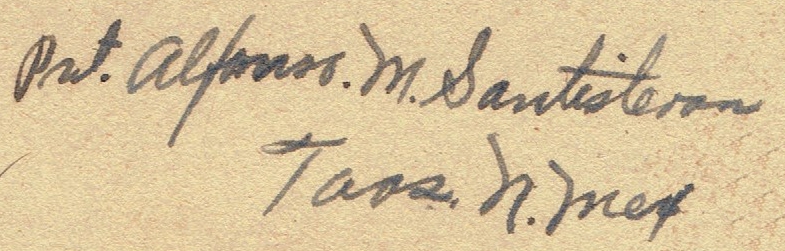 Pvt. Alfonso. M. Santistevan
Taos. N. Mex